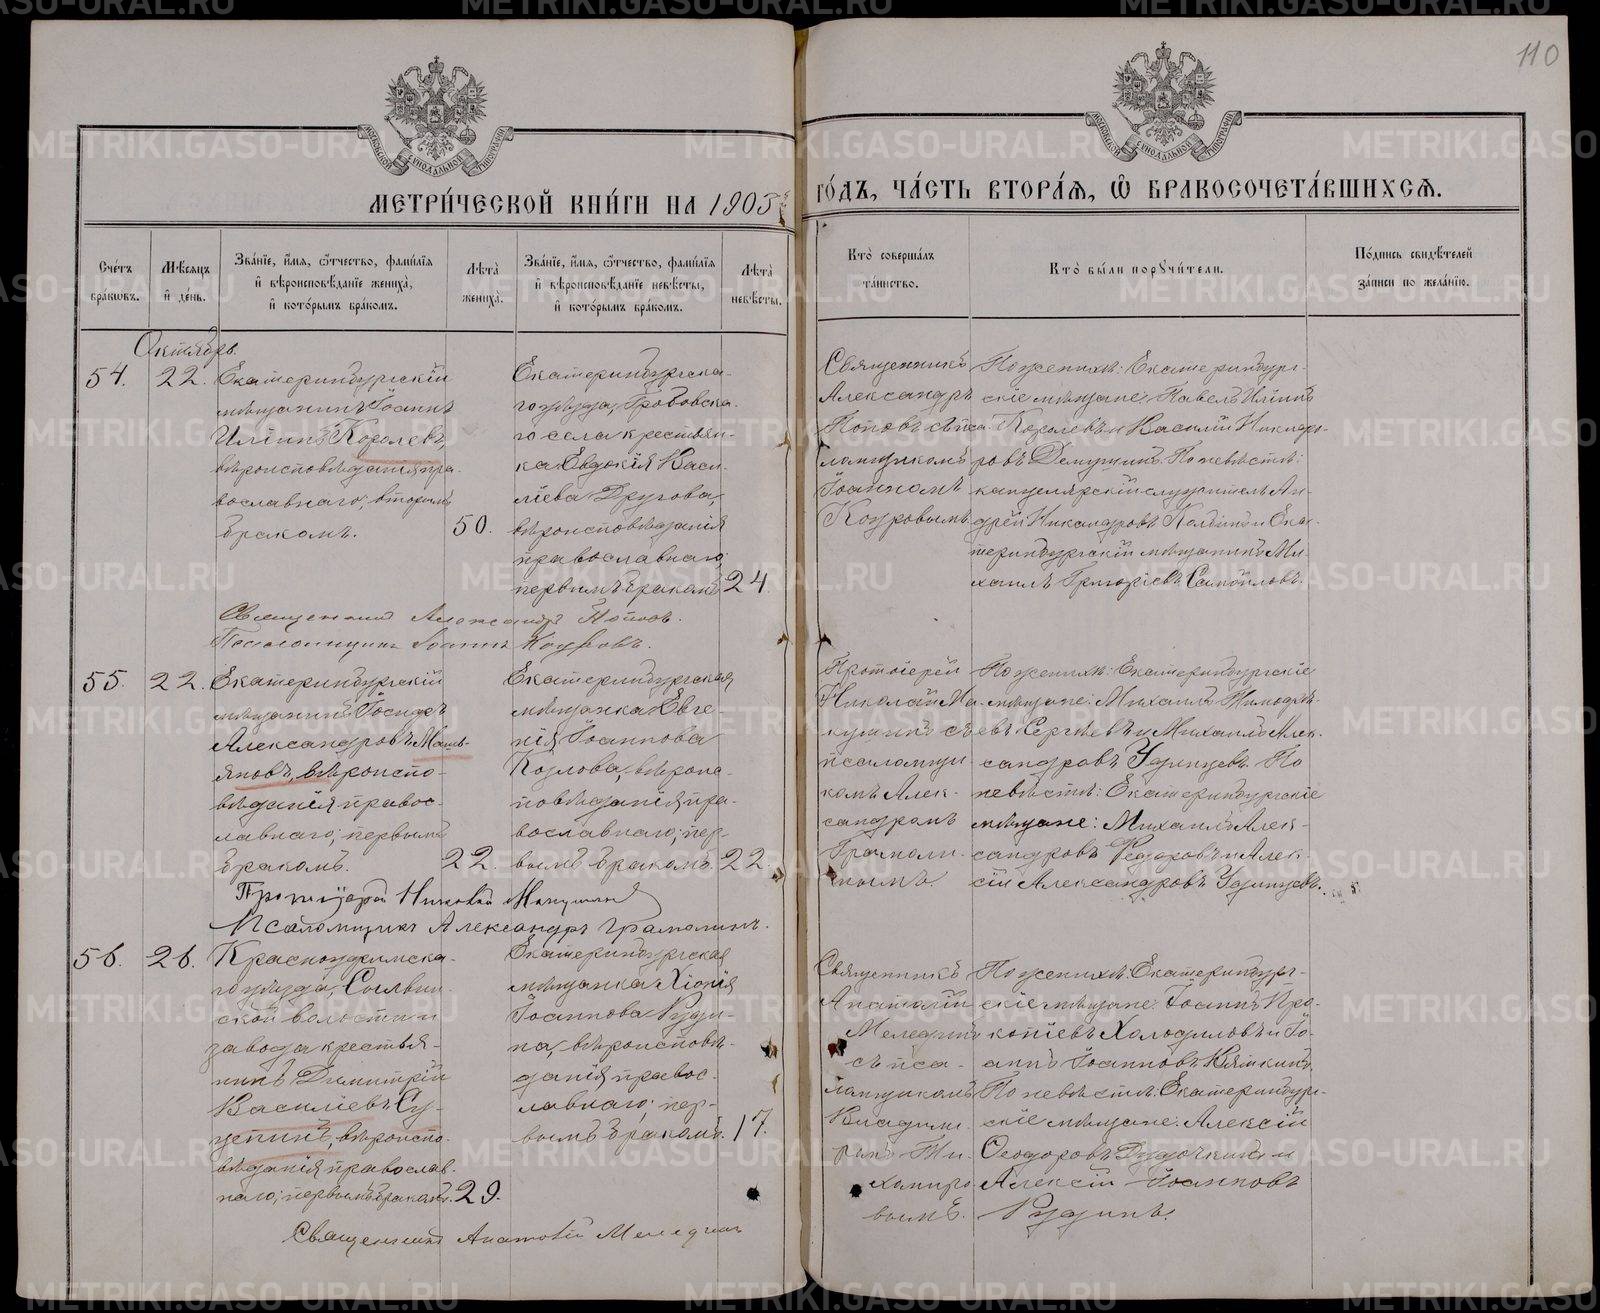 110
МЕТРИ́ЧЕСКОЙ КНИ́ГИ НА 1903
ГО́ДЪ, ЧА́СТЬ ВТОРА́Ѧ, Ѽ БРАКОСОЧЕТА́ВШИХСѦ.
Сче́тъ бра́кѡвъ.
Мѣ́сѧцъ и҆ де́нь.
Зва́нїе, и҆́мѧ, ѻ҆́тчество, фами́лїѧ
и҆ вѣроисповѣ́данїе жениха̀,
и҆ кото́рымъ бра́комъ.
Лѣ́та жениха̀.
Зва́нїе, и҆́мѧ, ѻ҆́тчество, фами́лїѧ
и҆ вѣроисповѣ́данїе невѣ́сты,
и҆ кото́рымъ бра́комъ.
Лѣ́та невѣ́сты.
Кто̀ соверша́лъ
та́инство.
Кто̀ бы́ли порꙋчи́тели.
По́дпись свидѣ́телей
за́писи по жела́нїю.
Октябрь.
54.
22.
Екатеринбургскій
мѣщанинъ Іоаннъ
Иліинъ Королевъ,
вѣроисповѣданія пра-
вославнаго, вторымъ
бракомъ.
50.
Екатеринбургска-
го уѣзда, Гробовска-
го села крестьян-
ка Евдокія Васи-
ліева Другова,
вѣроисповѣданія
православнаго,
первымъ бракомъ
24.
Священникъ
Александръ
Поповъ съ пса-
ломщикомъ
Іоанномъ
Коуровымъ
По женихѣ: Екатеринбург-
скіе мѣщане: Павелъ Иліинъ
Королевъ и Василій Никано-
ровъ Демущинъ. По невѣстѣ:
канцелярскій служитель Ан-
дрей Никандровъ и Ека-
теринбургскій мѣщанинъ Ми-
хаилъ Григоріевъ Самойловъ.
Священникъ Александръ Поповъ.
Псаломщикъ Іоаннъ Коуровъ.
55.
22.
Екатеринбургскій
мѣщанинъ
Александровъ Мань-
яковъ, вѣроиспо-
вѣданія правос-
лавнаго; первымъ
бракомъ.
22.
Екатеринбургская
мѣщанка Евге-
нія Іоаннова
Козлова, вѣроис-
повѣданія пра-
вославнаго; пер-
вымъ бракомъ.
22.
Протоіерей
Николай Ма-
кушинъ съ
псаломщи-
комъ Алек-
сандромъ
Грамоли-
нымъ.
По женихѣ: Екатеринбургскіе
мѣщане: Михаилъ Тимофѣ-
евъ Сергѣевъ и Михаилъ Алек-
сандровъ Удинцевъ. По
невѣстѣ: Екатеринбургскіе
мѣщане: Михаилъ Алек-
сандровъ Федоровъ и Алек-
сій Александровъ Удинцевъ.
Протоіерей Николай Макушинъ
Псаломщикъ Александръ Грамолинъ.
56.
26.
Красноуфимска-
го уѣзда, Сылвин-
ской волости и
завода крестья-
нинъ Димитрій
Василіевъ Су-
цепинъ, вѣроиспо-
вѣданія православ-
наго; первымъ бракомъ.
29.
Екатеринбургская
мѣщанка Хіонія
Іоаннова Руди-
на, вѣроисповѣ-
данія правос-
лавнаго; пер-
вымъ бракомъ.
17.
Священникъ
Анатолій
Мелединъ
съ пса-
ломщикомъ
Владими-
ромъ Ти-
хомиро-
вымъ.
По женихѣ: Екатеринбург-
скіе мѣщане: Іоаннъ Про-
копіевъ Холодиловъ и Іо-
аннъ Іоанновъ Кляпкинъ.
По невѣстѣ: Екатеринбург-
скіе мѣщане: Алексій
Ѳеодоровъ Дудочкинъ и
Алексій Іоанновъ
Рудинъ.
Священникъ Анатолій Меледин